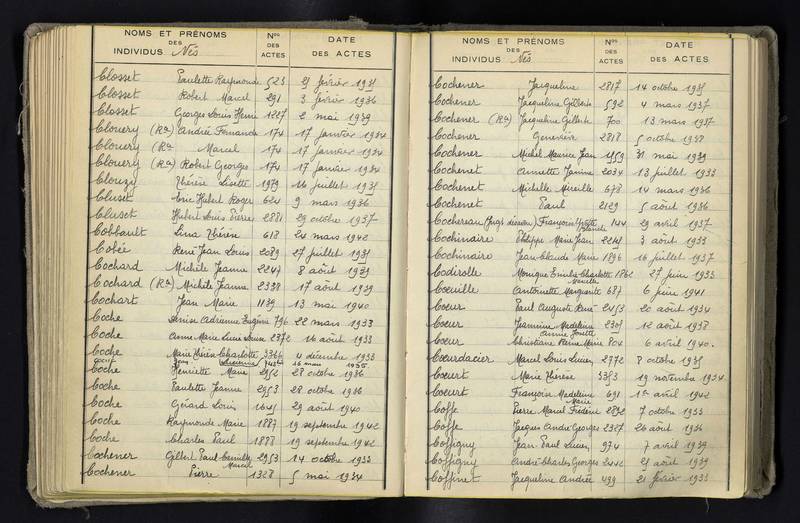 NOMS ET PRÉNOMS DES INDIVIDUS Nés
Nos DES ACTES
DATE DES ACTES
Closset Paulette Raymonde 523 février
Closset Robert Marcel 291 3 février 1936
Closset Georges Louis Henri 1227 2 mai 1939
Clouery (Rn) André Fernand 174 17 janvier 1934
Clouery (Rn Marcel 174 17 janvier 1934
Clouery (Rn) Robert Georges 174 17 janvier 1934
Clouzy Thérèse Lisette 1979 16 juillet
Cluset Eric Hubert Roger 624 9 mars 1936
Cluset Hubert Louis Pierre 2881 29 octobre 1937
Cobbault Lina Thérèse 618 24 mars 1942
Cobée René Jean Louis 2089 27 juillet
Cochard Michèle Jeanne 2247 8 août 1939
Cochard (Rn) Michèle Jeanne 2338 17 août 1939
Cochart Jean Marie 1139 13 mai 1940
Coche Denise Adrienne Eugénie 796 22 mars 1933
Coche Anne Marie Louise 2372 16 août 1933
Coche Marie Thérèse Charlotte 3366 4 décembre 1933
Coche Henriette Marie 2952 28 octobre 1936
Coche Paulette Jeanne 2953 28 octobre 1936
Coche Gérard Louis 1645 29 août 1940
Coche Raymonde Marie 1887 19 septembre 1942
Coche Charles Paul 1888 19 septembre 1942
Cochener Gilbert Paul Camille Marcel 2953 14 octobre 1933
Cochener Pierre 1328 5 mai 1934
NOMS ET PRÉNOMS DES INDIVIDUS Nés
Nos DES ACTES
DATE DES ACTES
Cochener Jacqueline 2817 14 octobre
Cochener Jacqueline Gilberte 592 4 mars 1937
Cochener (Rn) Jacqueline Gilberte 700 13 mars 1937
Cochener Geneviève 2818 5 octobre 1938
Cochener Michel Maurice Jean 1559 31 mai 1939
Cochenet Annette Janine 2034 18 juillet 1933
Cochenet Michelle Mireille 678 14 mars 1936
Cochenet Paul 2129 5 août 1936
Cochereau Françoise Yvette 144 29 avril 1937
Cochinaire Philippe Marie Jean 2241 3 août 1933
Cochinaire Jean Claude Marie 1896 16 juillet 1937
Codirolle Monique Emilie Charlotte 1862 27 juin 1933
Cœuille Antoinette Marguerite 687 6 juin 1941
Cœur Paul Auguste René 2453 20 août 1934
Cœur Jeannine Madeleine 2301 12 août 1938
Cœur Christiane Reine Marie 804 6 avril 1940.
Cœurdacier Marcel Louis Lucien 2772 8 octobre
Cœurt Marie Thérèse 3353 19 novembre 1934
Cœurt Françoise Madeleine Marie 691 1er avril 1942
Coffe Pierre Marcel Frédéric 2892 7 octobre 1933
Coffe Jacques André Georges 2327 26 août 1936
Coffigny Jean Paul Lucien 974 7 avril 1939
Coffigny André Charles Georges 2442 29 août 1939
Coffinet Jacqueline Andrée 499 21 février 1933